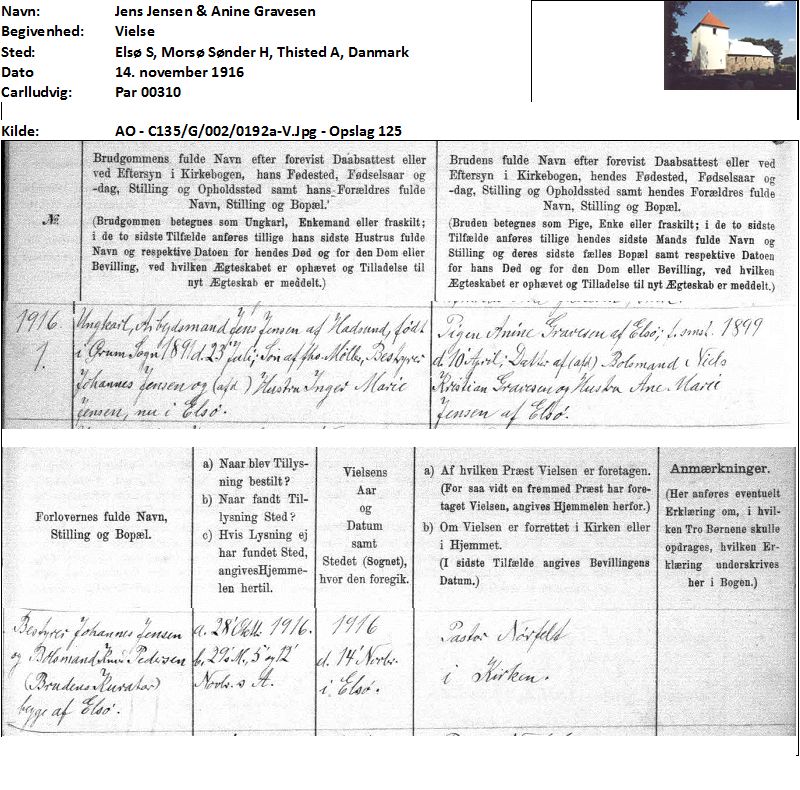 Navn: Jens Jensen & Anine Gravesen
Begivenhed: Vielse
Sted: Elsø S, Morsø Sønder H, Thisted A, Danmark
Dato 14. november 1916
Carlludvig: Par 00310
Kilde: AO - C135/G/002/0192a-V.Jpg - Opslag 125
№
Brudgommens fulde Navn efter forevist Daabsattest eller
ved Eftersyn i Kirkebogen, hans Fødested, Fødselsaar og
-dag, Stilling og Opholdssted samt hans Forældres fulde
Navn, Stilling og Bopæl.
(Brudgommen betegnes som Ungkarl, Enkemand eller fraskilt;
i de to sidste Tilfælde anføres tillige hans sidste Hustrus fulde
Navn og respektive Datoen for hendes Død og for den Dom eller
Bevilling, ved hvilken Ægteskabet er ophævet og Tilladelse til
nyt Ægteskab er meddelt.)
Brudens fulde Navn efter forevist Daabsattest eller ved
Eftersyn i Kirkebogen, hendes Fødested, Fødselsaar og
-dag, Stilling og Opholdssted samt hendes Forældres fulde
Navn, Stilling og Bopæl.
(Bruden betegnes som Pige, Enke eller fraskilt; i de to sidste
Tilfælde anføres tillige hendes sidste Mands fulde Navn og
Stilling og deres sidste fælles Bopæl samt respektive Datoen
for hans Død og for den Dom eller Bevilling, ved hvilken
Ægteskabet er ophævet og Tilladelse til nyt Ægteskab er meddelt.)
1916.
1.
Ungkarl, Arbejdsmand Jens Jensen af Hadsund, født
i Sogn 1891 d. 23 Juli; Søn af Bestyrer
Johannes Jensen og (afd.) Hustru Inger Marie
Jensen, nu i Elsø.
Pigen Anine Gravesen af Elsø; f. smst. 1899
d. 10 April; Datter af (afd) Bolsmand Niels
Kristian Gravesen og Hustru Ane Marie
Jensen af Elsø.
Forlovernes fulde Navn,
Stilling og Bopæl.
a) Naar blev Tillys-
ning bestilt?
b) Naar fandt Til-
lysning Sted?
c) Hvis Lysning ej
har fundet Sted,
angives Hjemme-
len hertil.
Vielsens
Aar
og
Datum
samt
Stedet (Sognet),
hvor den foregik.
a) Af hvilken Præst Vielsen er foretagen.
(For saa vidt en fremmed Præst har fore-
taget Vielsen, angives Hjemmelen herfor.)
b) Om Vielsen er forrettet i Kirken eller
i Hjemmet.
(I sidste Tilfælde angives Bevillingens
Datum.)
Anmærkninger.
(Her anføres eventuelt
Erklæring om, i hvil-
ken Tro Børnene skulle
opdrages, hvilken Er-
klæring underskrives
her i Bogen.)
Bestyrer Johannes Jensen
og Bolsmand Pedersen
(Brudens Kurator)
begge af Elsø.
a. 28' Oktb. 1916.
b. 29' 5' og 12'
Novbr.
1916
d. 14' Novbr.
i Elsø.
Pastor Nørfelt
i Kirken.